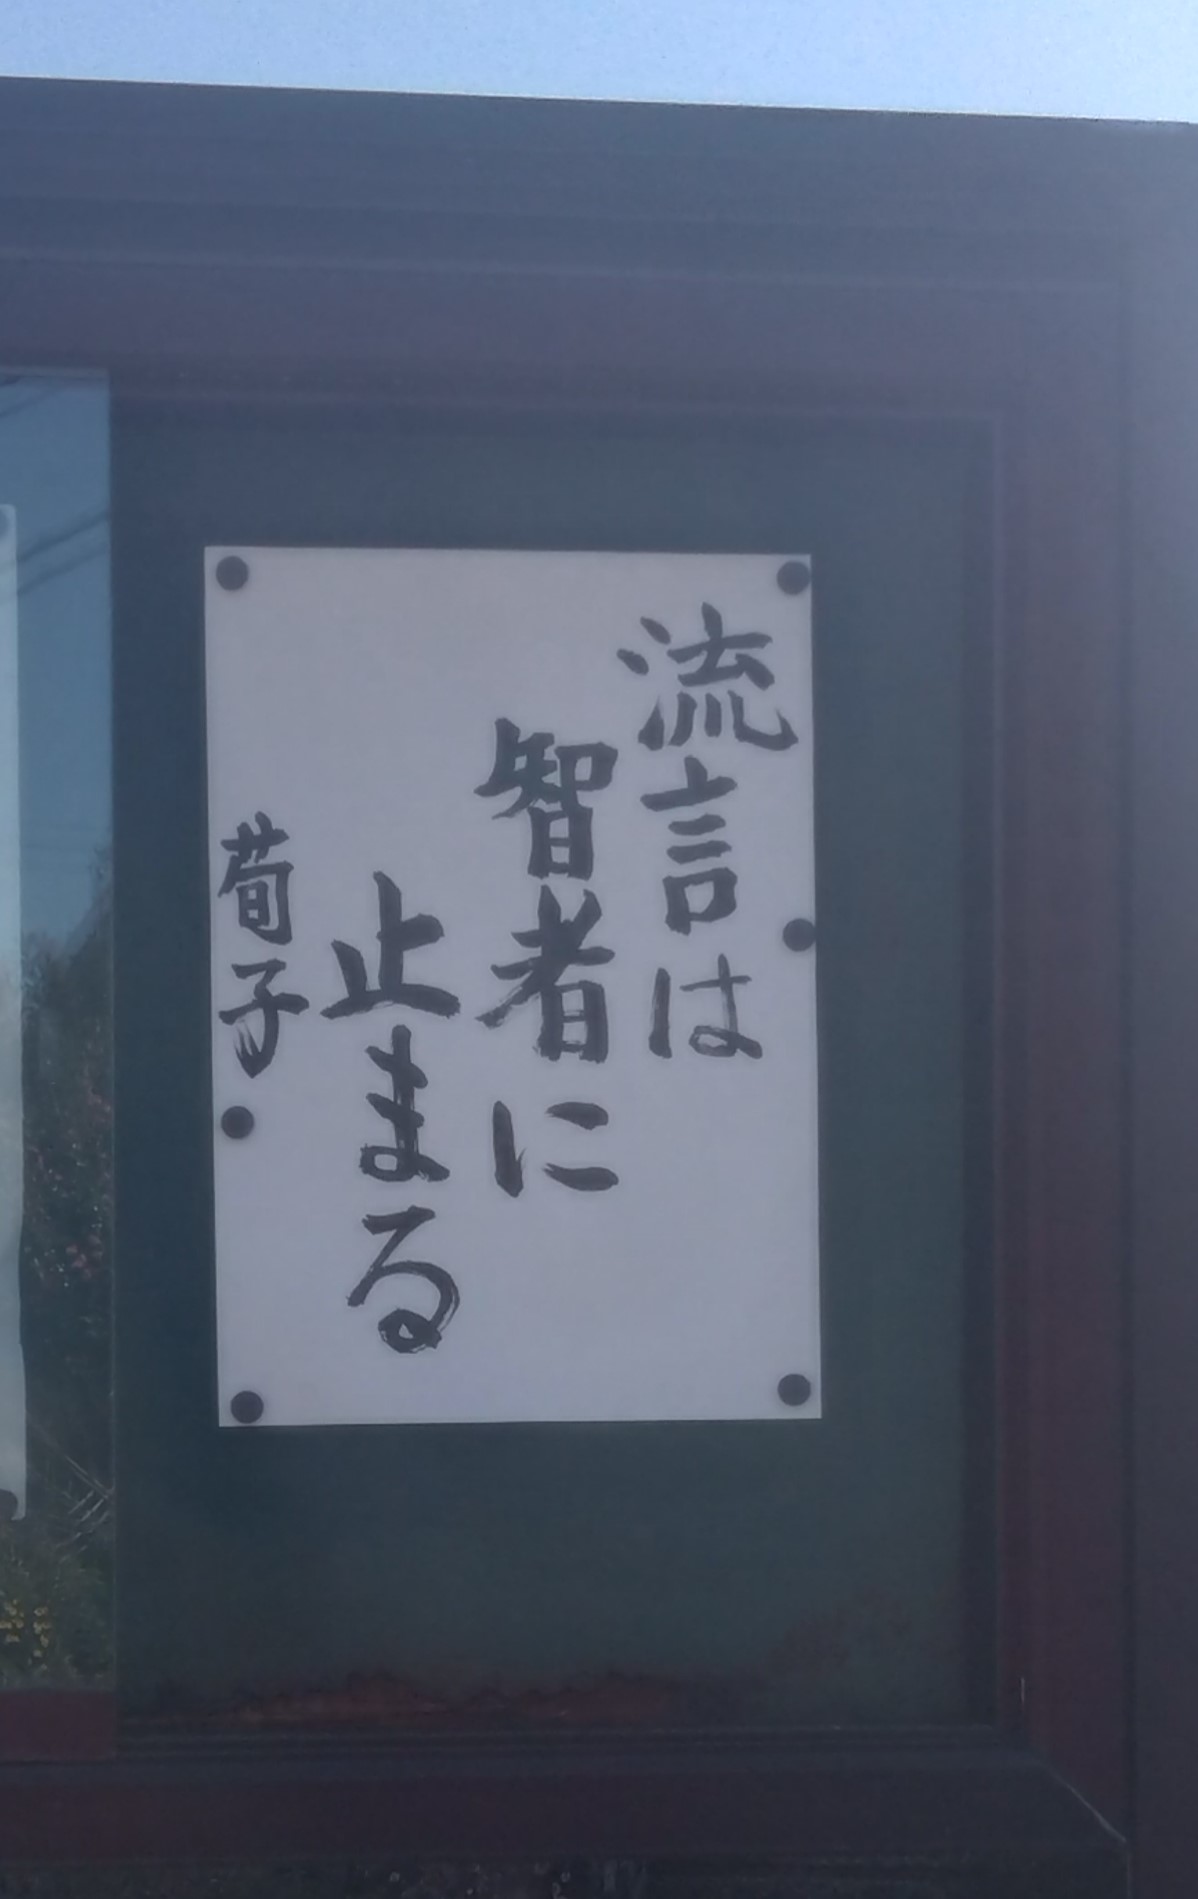 流言は
智者に
止まる
荀子